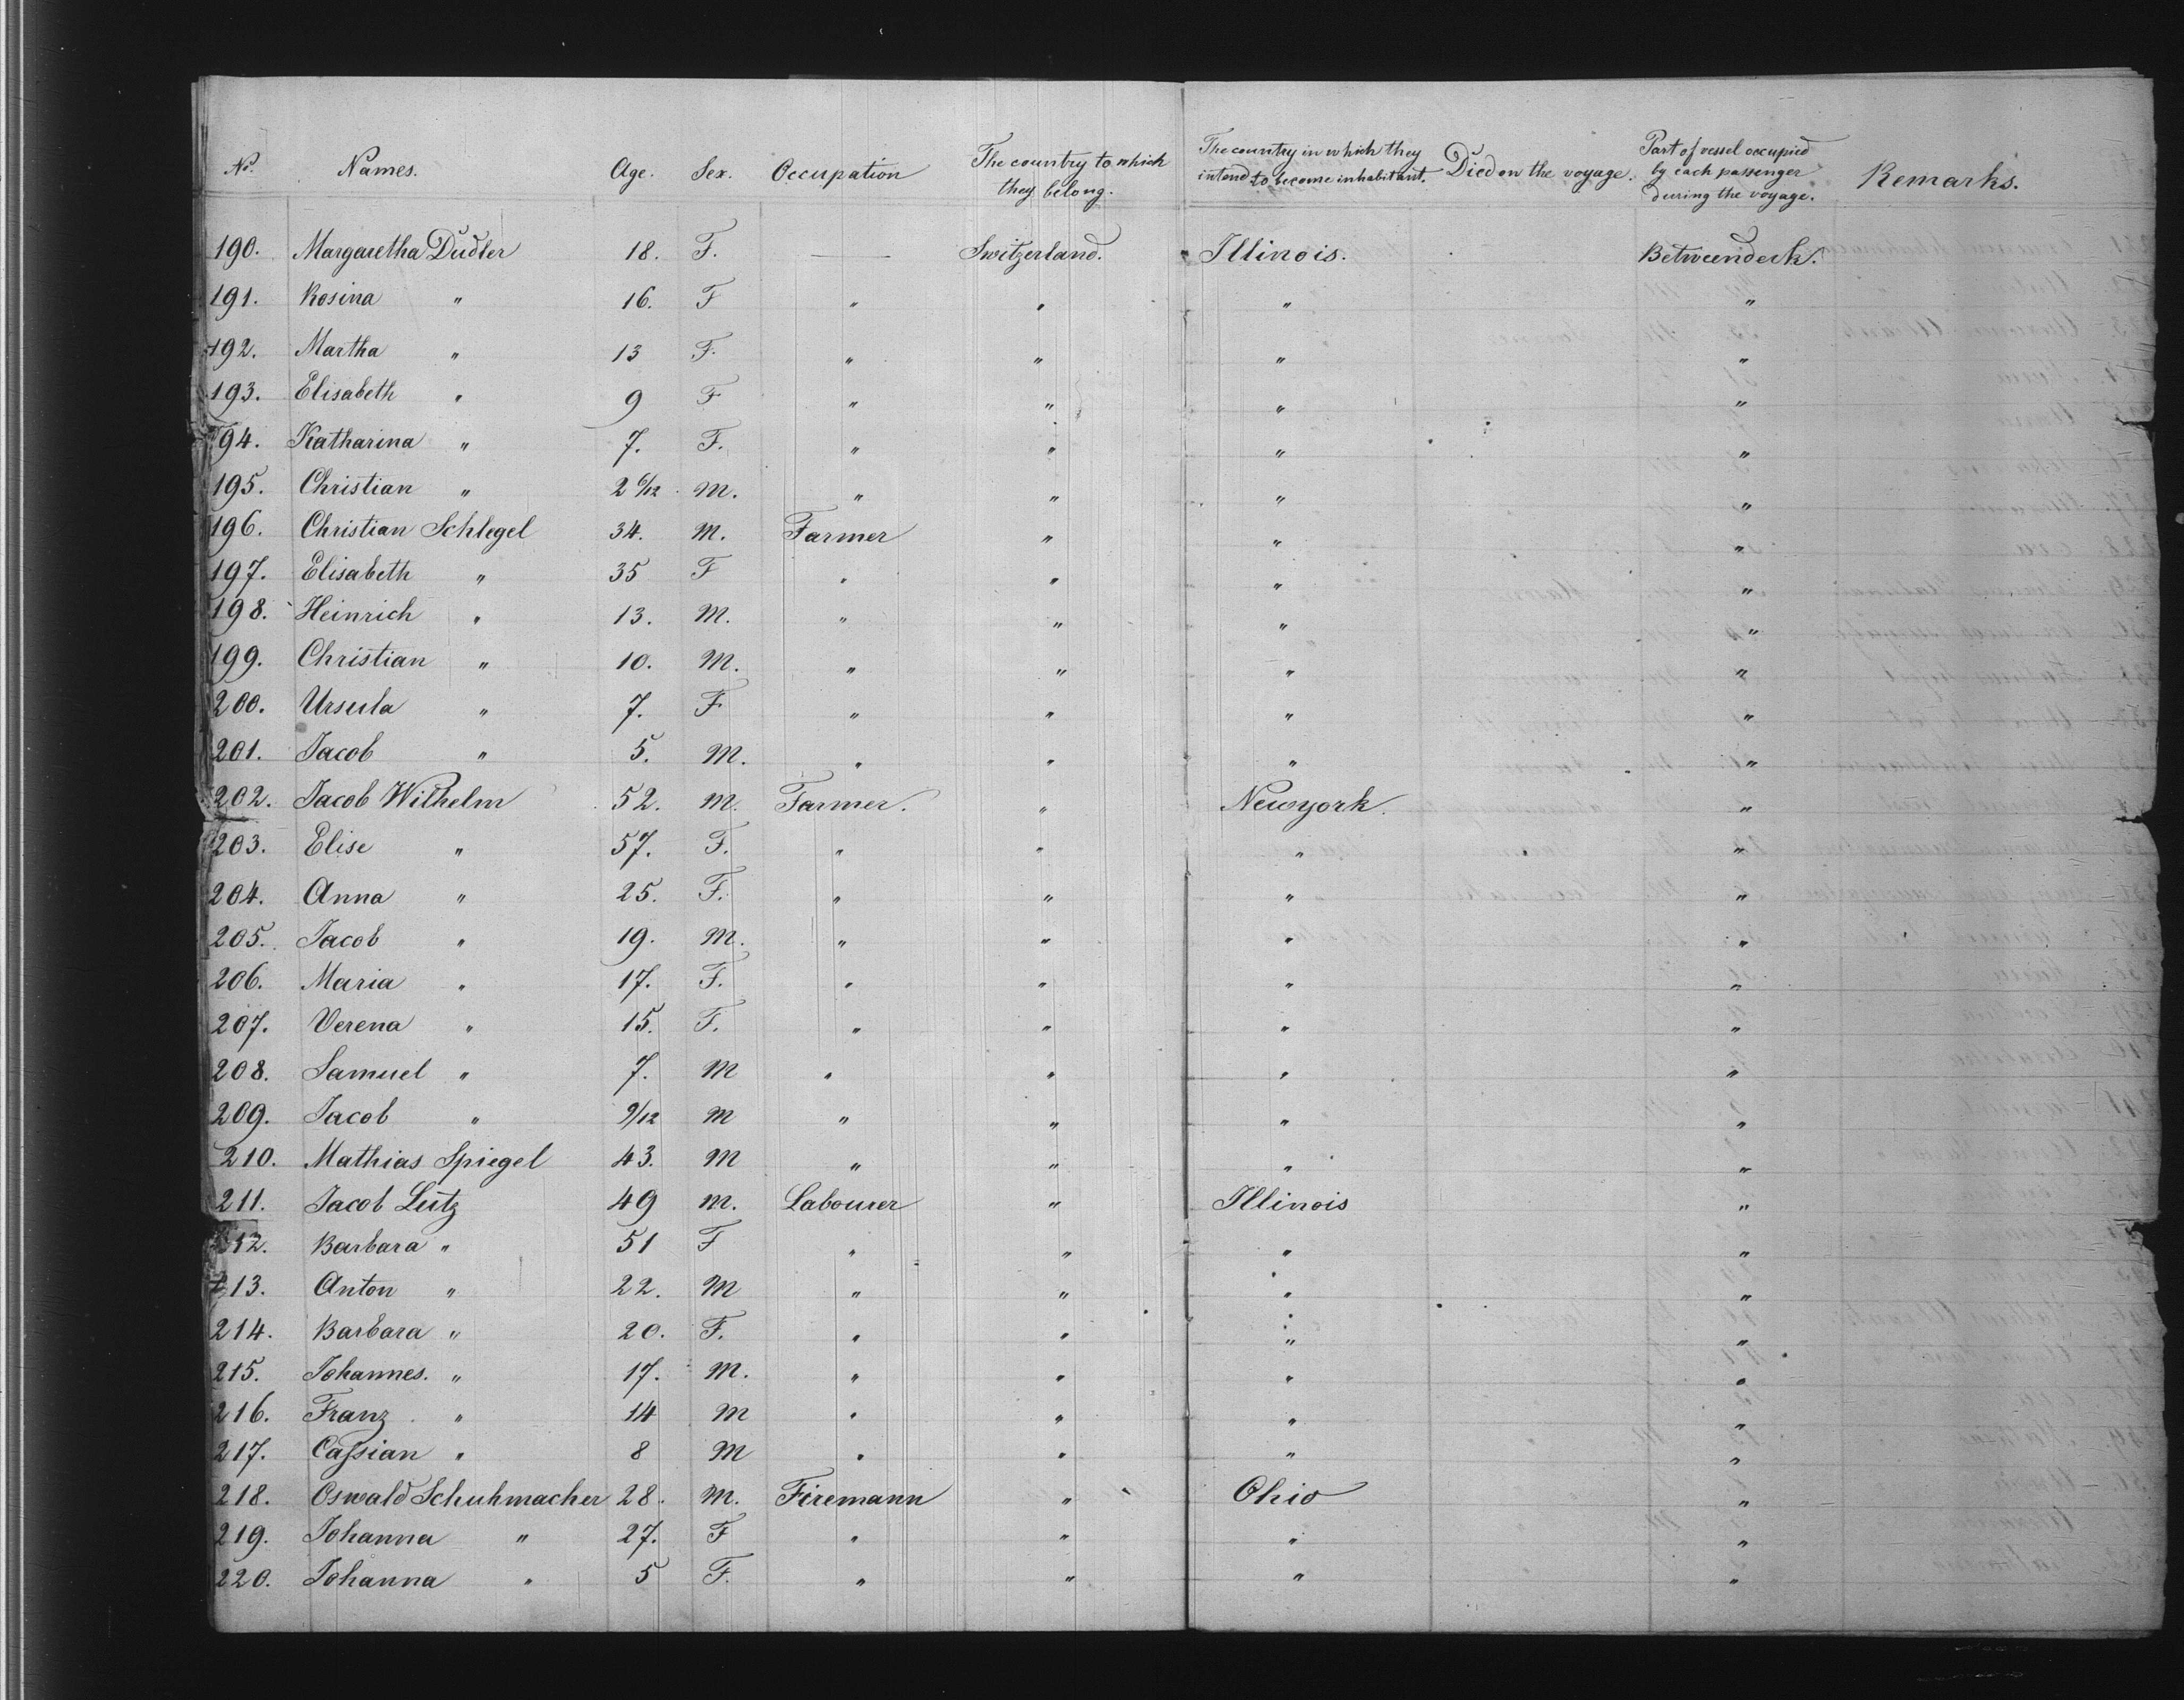 No. Names. Age. Sex. Occupation The country to which they belong. The country in which they intend to become inhabitant. Died on the voyage. Part of vessel occupied by each passenger during the voyage. Remarks.
190. Margaretha Dudler 18. F. — Switzerland. Illinois. Betweendeck.
191. Rosina " 16. F " " " "
192. Martha " 13 F. " " " "
193. Elisabeth " 9 F " " " "
194. Katharina " 7. F. " " " "
195. Christian " 2 6/12 M. " " " "
196. Christian Schlegel 34. M. Farmer " " "
197. Elisabeth " 35 F " " " "
198. Heinrich " 13. M. " " " "
199. Christian " 10. M. " " " "
200. Ursula " 7. F " " " "
201. Jacob " 5. M. " " " "
202. Jacob Wilhelm 52. M. Farmer. " Newyork. "
203. Elise " 57. F. " " " "
204. Anna " 25. F. " " " "
205. Jacob " 19. M. " " " "
206. Maria " 17. F. " " " "
207. Verena " 15. F. " " " "
208. Samuel " 7. M " " " "
209. Jacob " 9/12 M " " " "
210. Mathias Spiegel 43. M " " " "
211. Jacob Lutz 49 M. Labourer " Illinois "
212. Barbara " 51 F " " " "
213. Anton " 22. M " " " "
214. Barbara " 20. F. " " " "
215. Johannes. " 17. M. " " " "
216. Franz " 14 M " " " "
217. Caſsian " 8 M " " " "
218. Oswald Schuhmacher 28. M. Firemann " Ohio "
219. Johanna " 27. F " " " "
220. Johanna " 5 F. " " " "